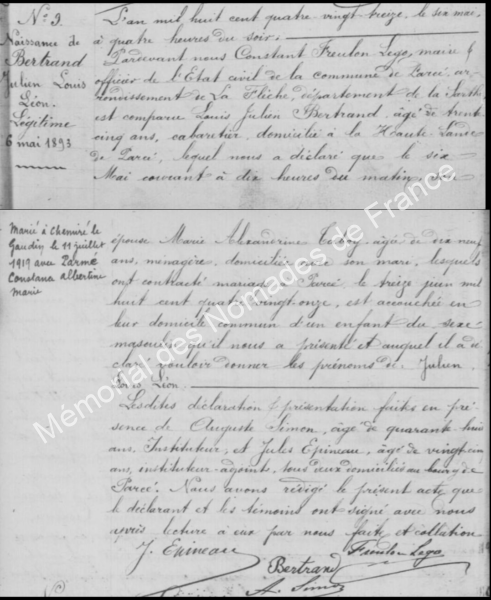 N°. 9.
Naissance de
Bertrand
Julien Louis
Léon.
Légitime
6 mai 1893
L'an mil huit cent quatre-vingt-treize, le six mai,
à quatre heures du soir.
Pardevant nous Constant Freulon Lego, maire &
officier de l'Etat civil de la commune de Parcé, ar-
rondissement de La Flèche, département de la Sarthe
est comparu Louis Julien Bertrand, âgé de trente
cinq ans, cabaretier, domicilié à la Haute
de Parcé, lequel nous a déclaré que le six
Mai courant à dix heures du matin,
Marié à Chemiré le
Gaudin le 11 juillet
1919 avec Parmé
Constance Albertine
Marie
épouse Marie Alexandrine âgée de dix neuf
ans, ménagère, domiciliée son mari, lesquels
ont contracté mariage Parcé, le treize juin mil
huit cent quatre-vingt-onze, est accouchée en
leur domicile commun d'un enfant du sexe
masculin qu'il nous a présenté et auquel il a dé-
claré vouloir donner les prénoms de Julien
Louis Léon.
Lesdites déclaration & présentation faites en pré-
sence de Auguste Simon, âgé de quarante-trois
ans, Instituteur, et Jules Epineau, âgé de vingt
ans, instituteur-adjoint, tous deux domiciliés au bourg de
Parcé. Nous avons rédigé le présent acte que
le déclarant et les témoins ont signé avec nous
après lecture à eux par nous faite et collation
J. Epineau
Freulon Lego
Bertrand
A. Simon
Mémorial des Nomades de France